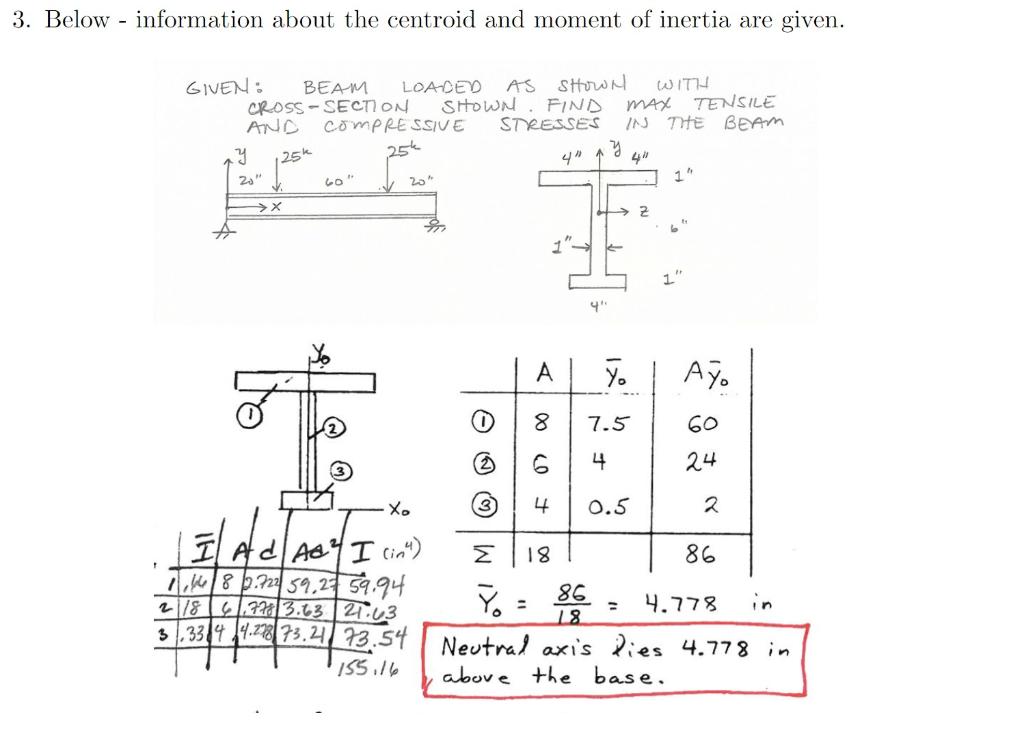 3. Below - information about the centroid and moment of inertia are given.
GIVEN: BEAM LOADED AS SHOWN WITH
CROSS-SECTION SHOWN. FIND MAX TENSILE
AND COMPRESSIVE STRESSES IN THE BEAM
y 25k 25k
20" 60" 20"
x
4" y 4"
1"
z
6"
1"
1"
4"
Y₀
1
2
3
X₀
A ȳ₀ Aȳ₀
1 8 7.5 60
2 6 4 24
3 4 0.5 2
Σ 18 86
Ȳ₀ = 86/18 = 4.778 in
Neutral axis lies 4.778 in
above the base.
Ī A d Ad² I (in⁴)
1 .66 8 2.722 59.27 59.94
2 18 6 .778 3.63 21.63
3 .33 4 4.278 73.21 73.54
155.16